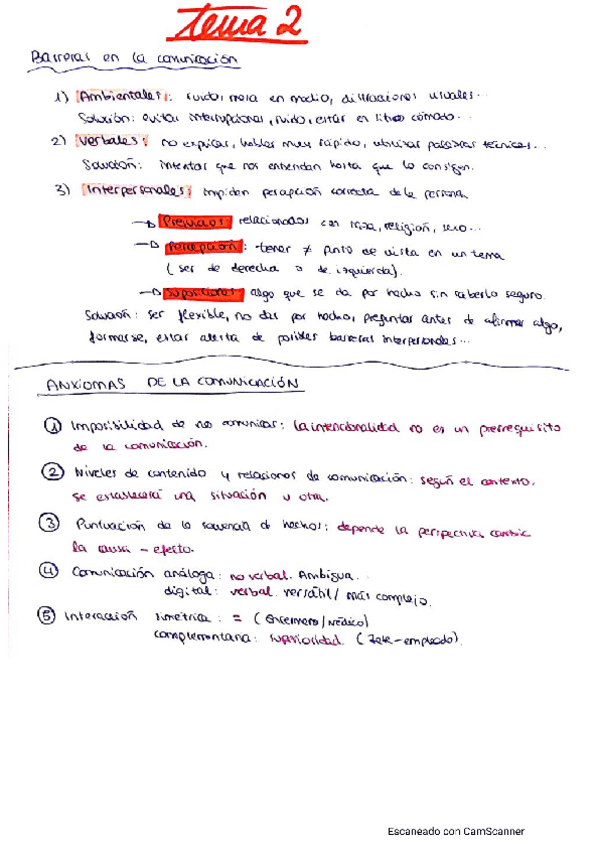 Tema 2
Barreras en la comunicación
1) Ambientales: ruido, mesa en medio, distracciones visuales...
Solución: evitar interrupciones, ruido, estar en sitios cómodo...
2) Verbales: no explicar, hablar muy rápido, utilizar palabras técnicas...
Solución: intentar que nos entiendan hasta que lo consigan.
3) Interpersonales: impiden percepción correcta de la persona
→ Prejuicios: relacionados con raza, religión, sexo...
→ Percepción: tener ≠ punto de vista en un tema
(ser de derecha o de izquierda).
→ Suposiciones: algo que se da por hecho sin saberlo seguro.
Solución: ser flexible, no dar por hecho, preguntar antes de afirmar algo,
formarse, estar alerta de posibles barreras interpersonales...
ANXIOMAS DE LA COMUNICACIÓN
① Imposibilidad de no comunicar: la intencionalidad no es un prerrequisito
de la comunicación.
② Niveles de contenido y relaciones de comunicación: según el contexto,
se establecerá una situación u otra.
③ Puntuación de la secuencia de hechos: depende la perspectiva cambia
la causa - efecto.
④ Comunicación análoga: no verbal. Ambigua...
digital: verbal. versátil / más complejo.
⑤ Interacción simétrica: = (Enfermero/médico)
complementaria: superioridad. (Jefe-empleado).
Escaneado con CamScanner